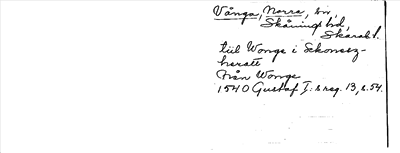 Vånga, Norra, sn,
Skånings hd,
Skarab. l.
till Wonge i Skonsez-
heratt
Nån Wonge
1540 Gustaf I:s reg. 13, s. 54.